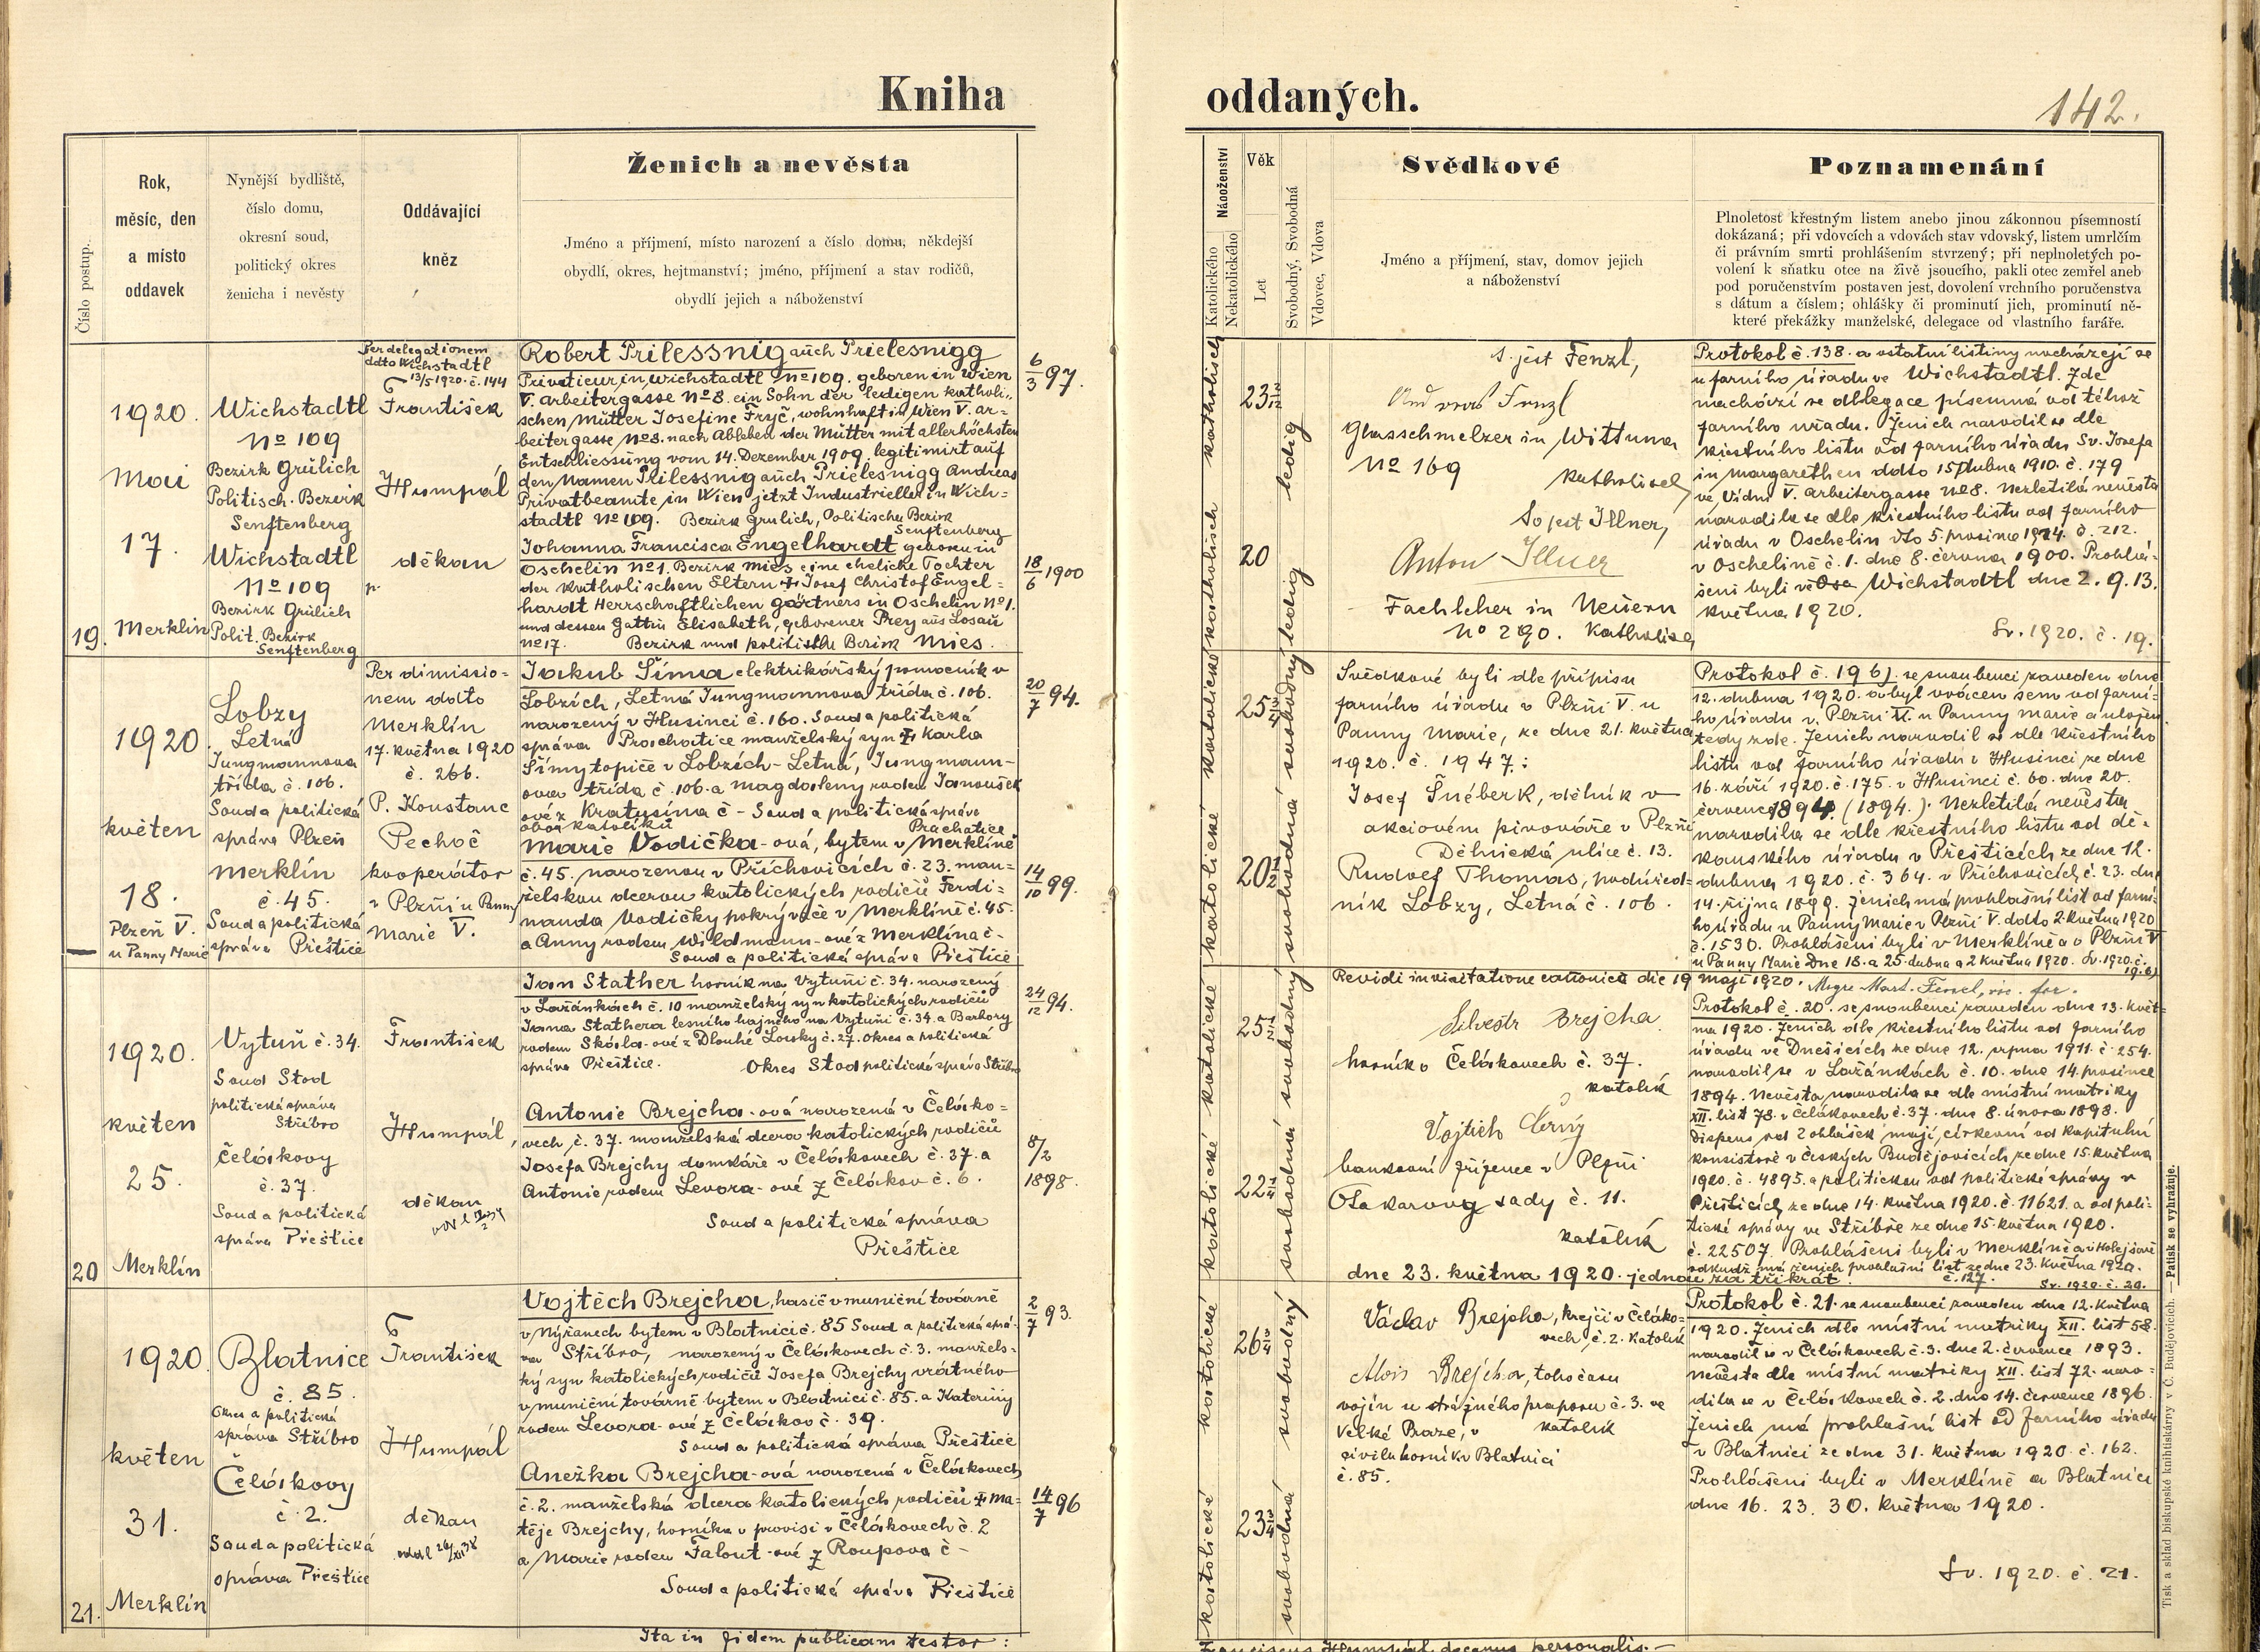 Kniha
oddaných.
142.
Číslo postup.
Rok,
měsíc, den
a místo
oddavek
Nynější bydliště,
číslo domu,
okresní soud,
politický okres
ženicha i nevěsty
Oddávající
kněz
Ženich a nevěsta
Jméno a příjmení, místo narození a číslo domu, někdejší
obydlí, okres, hejtmanství; jméno, příjmení a stav rodičů,
obydlí jejich a náboženství
Náboženství
Katolického
Nekatolického
Věk
Let
Svobodný, Svobodná
Vdovec, Vdova
Svědkové
Jméno a příjmení, stav, domov jejich
a náboženství
Poznamenání
Plnoletost křestným listem anebo jinou zákonnou písemností
dokázaná; při vdovcích a vdovách stav vdovský, listem umrlčím
či právním smrti prohlášením stvrzený; při neplnoletých po-
volení k sňatku otce na živě jsoucího, pakli otec zemřel aneb
pod poručenstvím postaven jest, dovolení vrchního poručenstva
s dátum a číslem; ohlášky či prominutí jich, prominutí ně-
které překážky manželské, delegace od vlastního faráře.
19.
1920.
Mai
17.
Merklin
Wichstadtl
No 109
Bezirk Grulich
Politisch. Bezirk
Senftenberg
Wichstadtl
No 109
Bezirk Grulich
Polit. Bezirk
Senftenberg
Per delegationem
ddto Wichstadtl
13/5 1920. č. 144
František
Humpál
děkan
Robert Prilessnig auch Prielesnigg
Privatieur in Wichstadtl No 109. geboren in Wien
V. arbeitergasse No 8. ein Sohn der ledigen katholi-
schen Mutter Josefine Fryč, wohnhaft in Wien V. ar-
beitergasse No 8. nach Ableben der Mutter mit allerhöchsten
Entschliessung vom 14. Dezember 1909. legitimirt auf
den Namen Prilessnig auch Prielesnigg Andreas
Privatbeamte in Wien jetzt Industrieller in Wich-
stadtl No 109. Bezirk Grulich, Politischer Bezirk
Senftenberg
6/3 97.
Johanna Francisca Engelhardt geboren in
Oschelin No 1. Bezirk Mies eine eheliche Tochter
der katholischen Eltern Josef Christof Engel-
hardt Herrschaftlichen gärtners in Oschelin No 1.
und dessen Gattin Elisabeth, geborener Prey aus Losau
No 17. Bezirk und politische Bezirk Mies.
18/6 1900
katholisch
katholisch
23 2/12
20
ledig
ledig
s. jest Fenzl,
Fenzl
Glasschmelzer in Wittuna
No 169
katholisch
So jest Illner,
Anton Illner
Fachlehrer in Neuern
No 290. Katholisch
Protokol č. 138. a ostatní listiny nacházejí se
u farního úřadu ve Wichstadtl. Zde
nachází se delegace písemná od téhož
farního úřadu. Ženich narodil se dle
křestního listu od farního úřadu Sv. Josefa
in Margarethen ddto 15. dubna 1910. č. 179
ve Vídni V. arbeitergasse No 8. Nezletilá nevěsta
narodila se dle křestního listu od farního
úřadu v Oschelin dto 5. prosince 1914. č. 212.
v Oschelině č. 1. dne 8. června 1900. Prohlá-
šeni byli ve Wichstadtl dne 2. 9. 13.
května 1920.
Sv. 1920. č. 19.
1920.
květen
18.
Plzeň V.
u Panny Marie
Lobzy
Letná
Jungmannova
třída č. 106.
Soud a politická
správa Plzeň
Merklín
č. 45.
Soud a politická
správa Přeštice
Per dimissio-
nem ddto
Merklín
17. května 1920
č. 266.
P. Konstanc
Pechoč
kooperátor
v Plzni u Panny
Marie V.
Jakub Šíma elektrikářský pomocník v
Lobzích, Letná Jungmannova třída č. 106.
narozený v Husinci č. 160. Soud a politická
správa Prachatice manželský syn Karla
Šímy topiče v Lobzích-Letná, Jungmann-
ova třída č. 106. a Magdaleny rodem Janoušek
ové z Kratusína č - Soud a politická správa
oba katolíků Prachatice
20/7 94.
Marie Vodička-ová, bytem v Merklíně
č. 45. narozenou v Příchovicích č. 23. man-
želskou dcerou katolických rodičů Ferdi-
nanda Vodičky pokrývače v Merklíně č. 45.
a Anny rodem Wildmann-ové z Merklína č -
Soud a politická správa Přeštice
14/10 99.
katolické
katolické
25 3/4
20 1/2
svobodný
svobodná
Svědkové byli dle přípisu
farního úřadu v Plzni V. u
Panny Marie, ze dne 21. května
1920. č. 1947.:
Josef Šnéberk, dělník v
akciovém pivováře v Plzni
Dělnická ulice č. 13.
Rudolf Thomas, podúřed-
ník Lobzy, Letná č. 106.
Protokol č. 196). se snoubenci zaveden dne
12. dubna 1920. a byl vrácen sem od farní-
ho úřadu v. Plzni V. u Panny Marie a uložen
tedy zde. Ženich narodil se dle křestního
listu od farního úřadu v Husinci ze dne
16. září 1920. č. 175. v Husinci č. 60. dne 20.
července 1894. (1894.). Nezletilá nevěsta
narodila se dle křestního listu od dě-
kanského úřadu v Přešticích ze dne 12.
dubna 1920. č. 364. v Příchovicích č. 23. dne
14. října 1899. Ženich má prohlášní list od farní-
ho úřadu u Panny Marie v Plzni V. ddto 2. května 1920
č. 1530. Prohlášeni byli v Merklíně a v Plzni V
u Panny Marie Dne 18. a 25. dubna a 2 května 1920. Sv. 1920. č.
19. 6)
Revidi in visitatione canonica die 19 maji 1920.
20
1920.
květen
25.
Merklín
Vytuň č. 34.
Soud Stod
politická správa
Stříbro
Čelákovy
č. 37.
Soud a politická
správa Přeštice
František
Humpál,
děkan
Jan Stather horník na Vytuni č. 34. narozený
v Lažánkách č. 10 manželský syn katolických rodičů
Jana Stathera lesního hajného na Vytuni č. 34. a Barbory
rodem Skála-ové z Dlouhé Louky č. 27. Okres a politická
správa Přeštice. Okres Stod politická správa Stříbro
24/12 94.
Antonie Brejcha-ová narozená v Čeláko-
vech, č. 37. manželská dcera katolických rodičů
Josefa Brejchy domkáře v Čelákovech č. 37. a
Antonie rodem Levora-ové z Čelákov č. 6.
Soud a politická správa
Přeštice
8/2
1898.
katolické
katolické
25
22 1/4
svobodný
svobodná
Silvestr Brejcha
horník v Čelákovech č. 37.
katolík
Vojtěch Černý
bankovní zřízenec v Plzni
Otakarovy sady č. 11.
katolík
dne 23. května 1920. jednou za třikrát.
Protokol č. 20. se snoubenci zaveden dne 13. květ-
na 1920. Ženich dle křestního listu od farního
úřadu ve Dnešicích ze dne 12. srpna 1911. č. 254.
narodil se v Lažánkách č. 10. dne 14. prosince
1894. Nevěsta narodila se dle místní matriky
XII. list 78. v Čelákovech č. 37. dne 8. února 1898.
Dispens od 2 ohlášek mají, církevní od kapitulní
konsistoře v Českých Budějovicích ze dne 15. května
1920. č. 4895. a politickou od politické správy v
Přešticích ze dne 14. května 1920. č. 11621. a od poli-
tické správy ve Stříbře ze dne 15. května 1920.
č. 22507. Prohlášeni byli v Merklíně a v Holejšově
odkudž má ženich prohlášní list ze dne 23. května 1920.
č. 127. Sv. 1920. č. 20.
21.
1920.
květen
31.
Merklín
Blatnice
č. 85.
Okres a politická
správa Stříbro
Čelákovy
č 2.
Soud a politická
správa Přeštice
František
Humpál
děkan
Vojtěch Brejcha, hasič v muniční továrně
v Nýřanech bytem v Blatnici č. 85 Soud a politická sprá-
va Stříbro, narozený v Čelákovech č. 3. manžels-
ký syn katolických rodičů Josefa Brejchy vrátného
v muniční továrně bytem v Blatnici č. 85. a Kateřiny
rodem Levora-ové z Čelákov č. 39.
Soud a politická správa Přeštice
2/7 93.
Anežka Brejcha-ová narozená v Čelákovech
č. 2. manželská dcera katolických rodičů Ma-
těje Brejchy, horníka v provisi v Čelákovech č. 2
a Marie rodem Falout-ové z Roupova č -
Soud a politická správa Přeštice
14/7 96
katolické
katolické
26 3/4
23 3/4
svobodný
svobodná
Václav Brejcha, krejčí v Čeláko-
vech, č. 2. katolík
Alois Brejcha, toho času
vojín u strážného praporu č. 3. ve
Velké Praze, v katolík
civilu horník v Blatnici
č. 85.
Protokol č. 21. se snoubenci zaveden dne 12. května
1920. Ženich dle místní matriky XII. list 58.
narodil se v Čelákovech č. 3. dne 2. července 1893.
nevěsta dle místní matriky XII. list 72. naro-
dila se v Čelákovech č. 2. dne 14. července 1896.
Ženich má prohlašní list od farního úřadu
v Blatnici ze dne 31. května 1920. č. 162.
Prohlášeni byli v Merklíně a Blatnici
dne 16. 23. 30. května 1920.
Sv. 1920. č. 21.
Ita in fidem publicam testor:
Franciscus Humpál decanus personalis.-
Tisk a sklad biskupské knihtiskárny v Č. Budějovicích. — Patisk se vyhražuje.